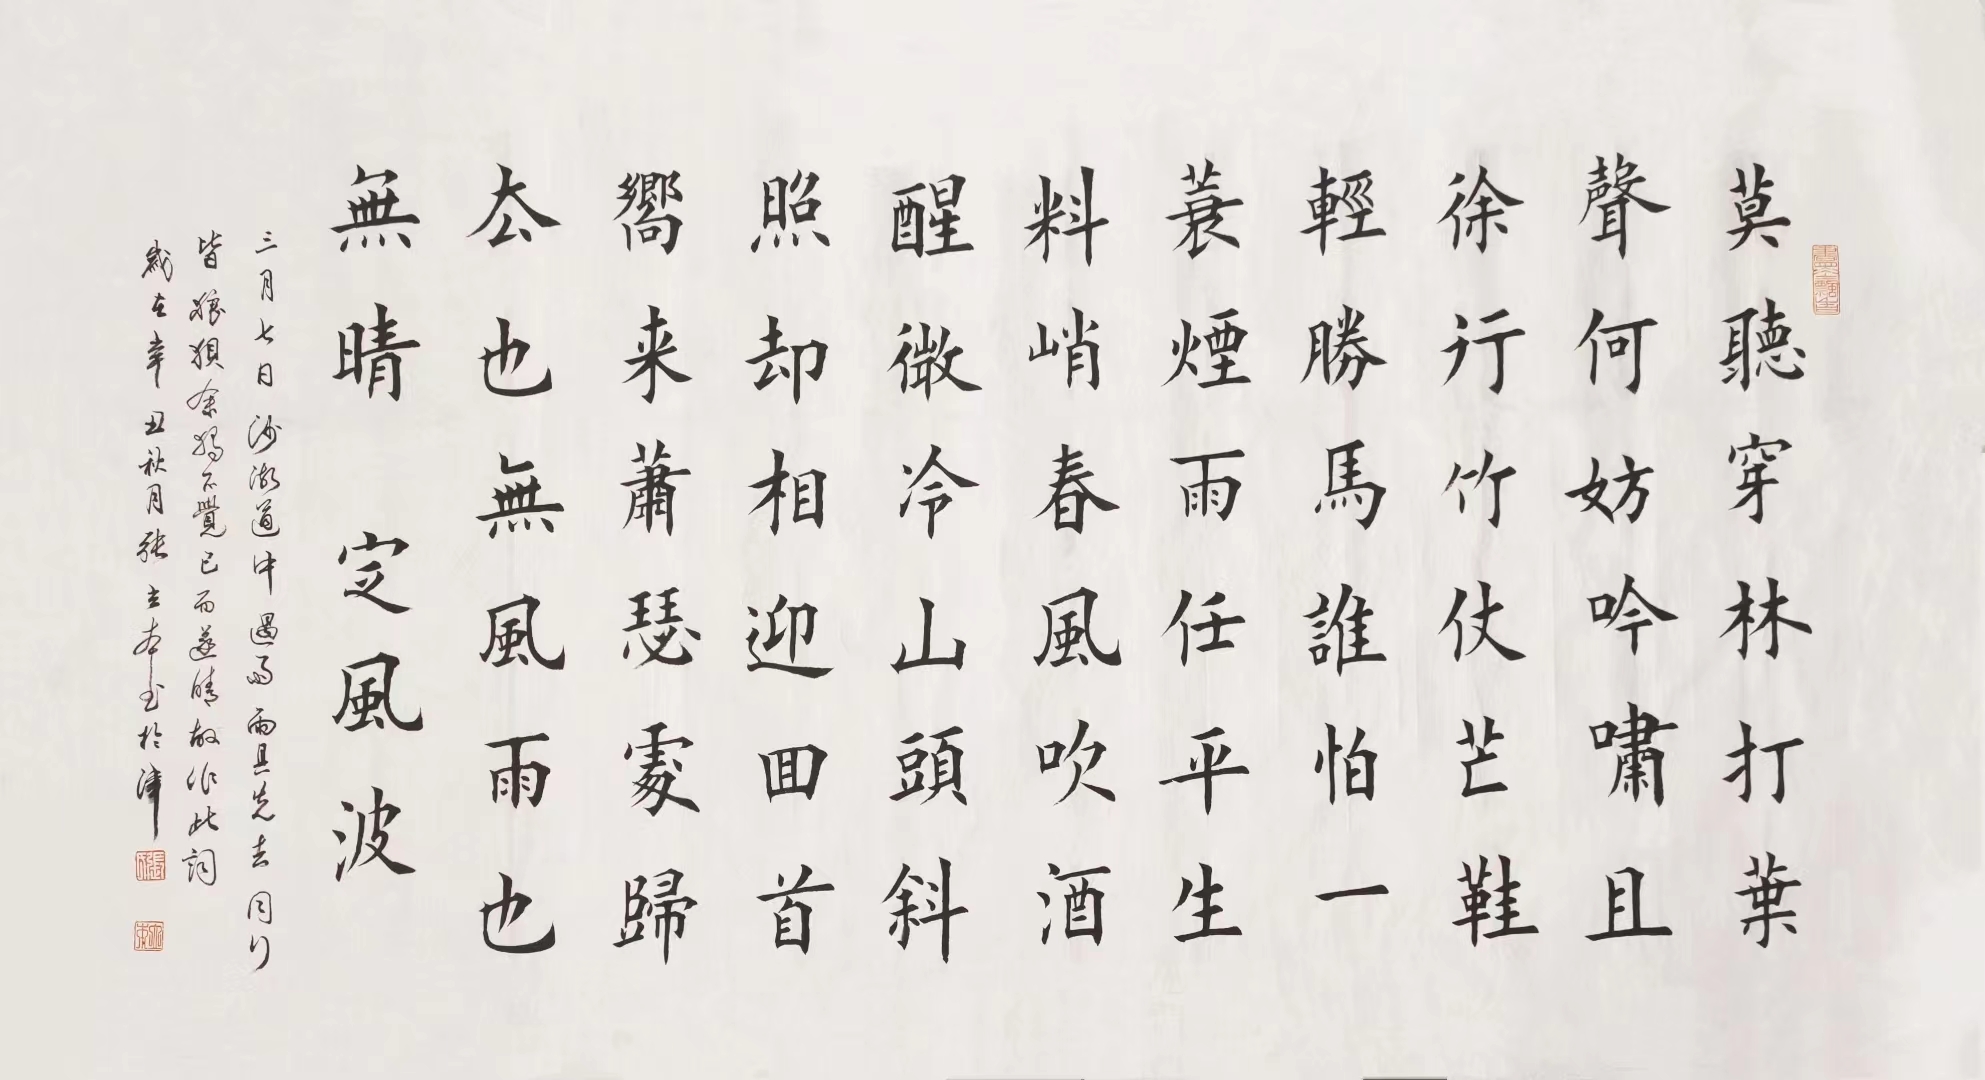 莫聽穿林打葉
聲何妨吟嘯且
徐行竹仗芒鞋
輕勝馬誰怕一
蓑煙雨任平生
料峭春風吹酒
醒微冷山頭斜
照却相迎回首
嚮来蕭瑟處歸
去也無風雨也
無晴 定風波
三月七日沙湖道中遇雨雨具先去同行
皆狼狽余獨不覺已而遂晴故作此詞
歲在辛丑秋月張立本书於津